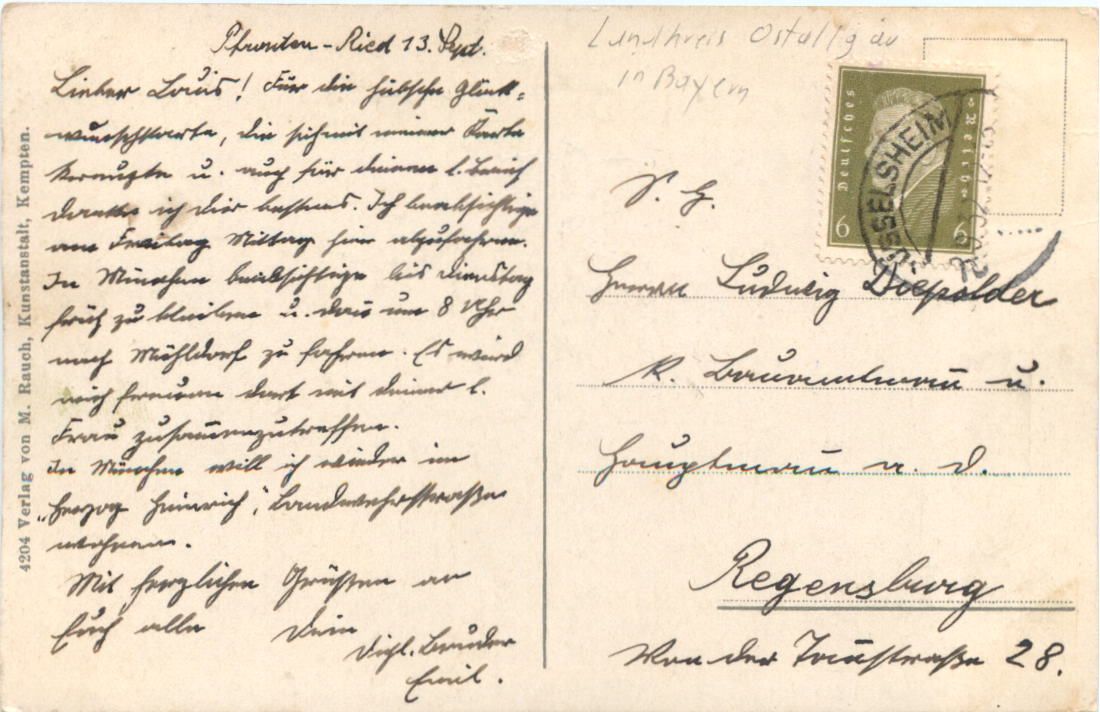 Pfronten-Ried 13. Sept.
Lieber Louis! Für die hübsche Glück-
wunschkarte, die sich mit meiner Karte
kreuzte u. auch für deinen l. Brief
danke ich dir bestens. Ich beabsichtige
am Freitag Mittag hier abzufahren.
In München beabsichtige bis Dienstag
früh zu bleiben u. dann um 8 Uhr
nach Mühldorf zu fahren. Es wird
mich freuen dort mit deiner l.
Frau zusammenzutreffen.
In München will ich wieder im
"Herzog Heinrich", Landwehrstraße
wohnen.
Mit herzlichen Grüßen an
Euch alle Dein
Bruder
Emil.
4204 Verlag von M. Rauch, Kunstanstalt, Kempten.
Landkreis Ostallgäu
in Bayern
Deutsches Reich
6 6
SSELSHEIM
S. H.
Herrn Ludwig Diepolder
K. u.
Hauptmann a. D.
Regensburg
Von der Tannstraße 28.